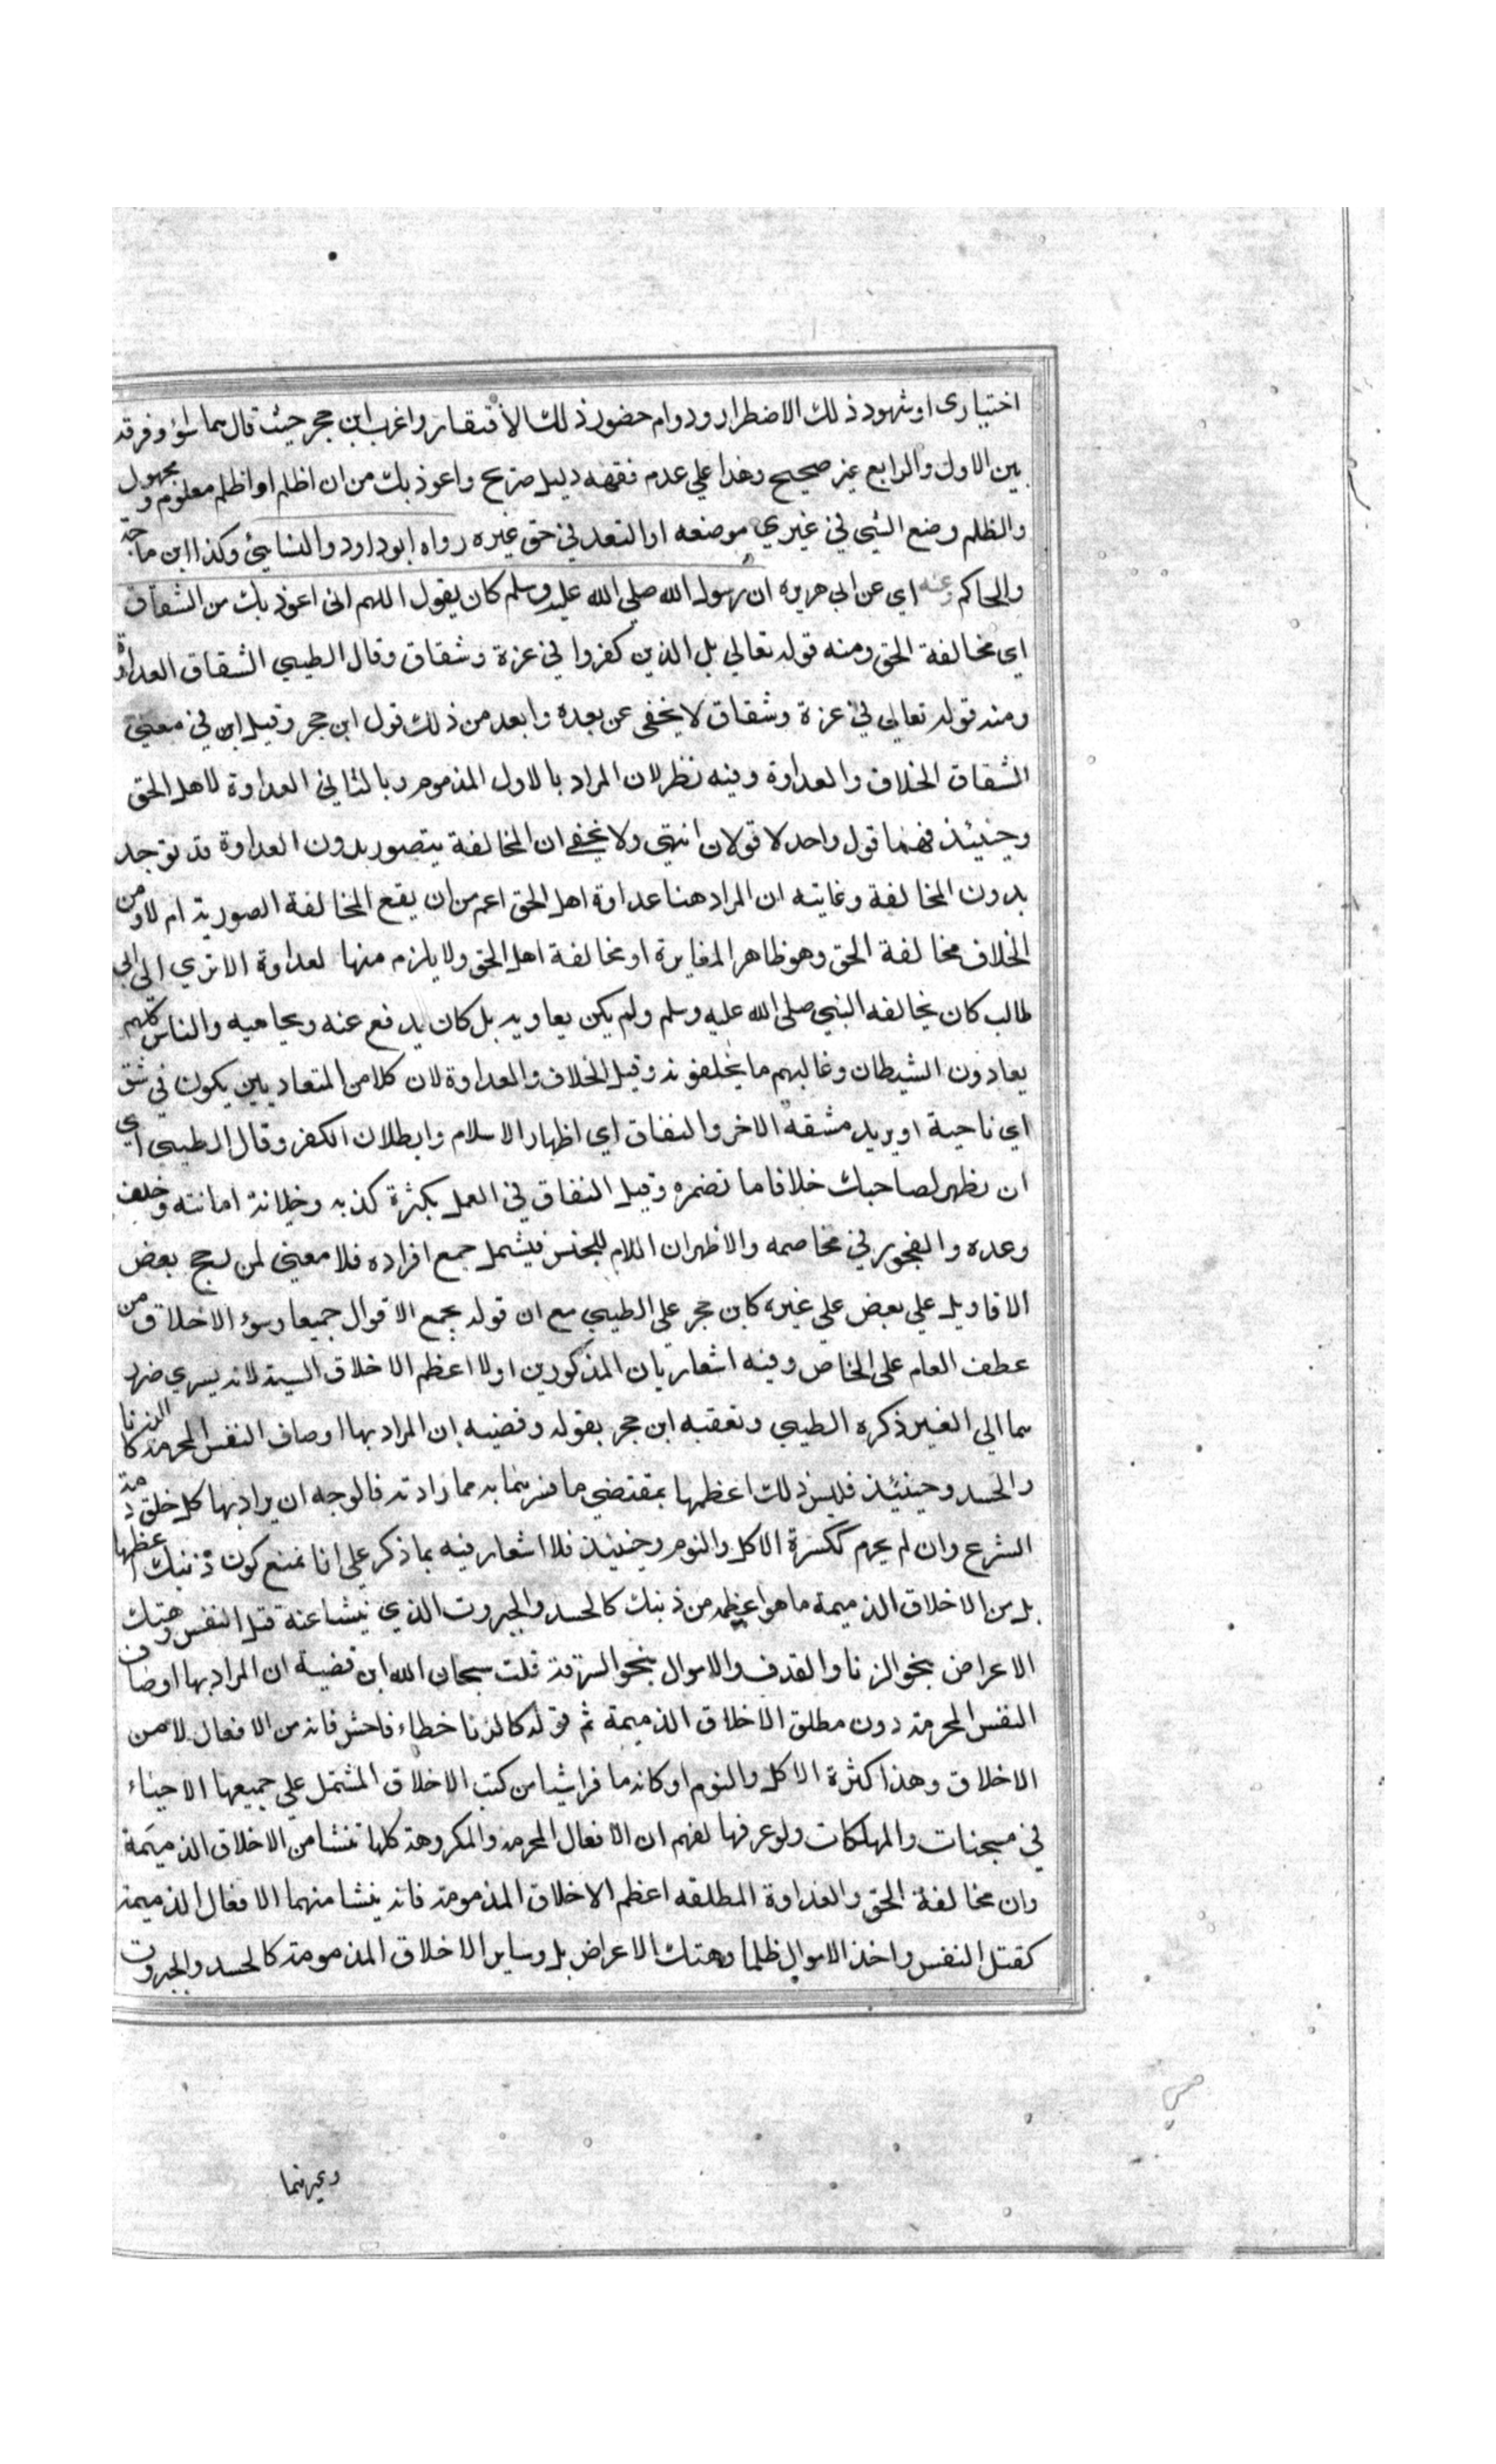 اختيارى او شهود ذلك الاضطرار ودوام حضور ذلك الافتقار واغرب ابن حجر حيث قال سما سؤ وفرقه
بين الاول والرابع غير صحيح وهذا علي عدم فقهه دليل صريح واعوذ بك من ان اظلم او اظلم معلوم ومجهول
والظلم وضع الشي في غيري موضعه او التعد في حق غيره رواه ابو داود والنسايئ وكذا ابن ماجة
والحاكم وعنه اي عن ابي هريره ان رسول الله صلي الله عليه وسلم كان يقول اللهم اني اعوذ بك من الشقاق
اي مخالفة الحق ومنه قوله تعالي بل الذين كفروا في عزة وشقاق وقال الطيبي الشقاق العداوة
ومنه قوله تعالي في عزة وشقاق لا يخفي عن بعده وابعد من ذلك قول ابن حجر وقيل اين في معني
الشقاق الخلاف والعداوة وفيه نظر لان المراد بالاول المذموم وبالثاني العداوة لاهل الحق
وحينئذ فهما قول واحد لا قولان انتهي ولا يخفي ان المخالفة يتصور بدون العداوة قد توجد
بدون المخالفة وغايته ان المراد هنا عداوة اهل الحق اعم من ان يقع المخالفة الصورية ام لا ومن
الخلاف مخالفة الحق وهو ظاهر المغايرة او مخالفة اهل الحق ولا يلزم منها لعداوة الا تري الي ابي
طالب كان يخالفه النبي صلي الله عليه وسلم ولم يكن يعاديه بل كان يدفع عنه ويحاميه والناس كلهم
يعادون الشيطان وغالبهم ما يخلفونه وقيل الخلاف والعداوة لان كلا من المتعاديين يكون في شق
اي ناحية او يريد مشقة الاخر والنفاق اي اظهار الاسلام وابطلان الكفر وقال الطيبي اي
ان نظهر لصاحبك خلافا ما تضمره وقيل النفاق في العمل بكثرة كذبه وخيانة امانته وخلف
وعده والفجور في مخاصمه والاظهر ان اللام للجنس فيشمل جمع افراده فلا معني لمن رجح بعض
الاقاويل علي بعض علي غيره كابن حجر علي الطيبي مع ان قوله يجمع الاقوال جميعا وسؤ الاخلاق من
عطف العام علي الخاص وفيه اشعار بان المذكورين اولا اعظم الاخلاق السيئة لانه يسري ضرر
سما الي الغير ذكره الطيبي وتعقبه ابن حجر بقوله وقضيه ان المراد بها اوصاف النفس المحرمة كالزنا
والحسد وحينئذ فليس ذلك اعظمها بمقتضي ما فسرتما به مما زادته فالوجه ان يراد بها كل خلق ذمه
الشرع وان لم يحرم ككسرة الاكل والنوم وحينئذ فلا اشعار فيه بما ذكر علي انا نمنع كون ذينك اعظمها
بل من الاخلاق الذميمة ما هو اعظم من ذينك كالحسد والجبروت الذي ينشا عنه قتل النفس وهتك
الاعراض بنحو الزنا والقدف والاموال بنحو السرقة قلت سبحان الله اين قضية ان المراد بها اوصاف
النفس المحرمة دون مطلق الاخلاق الذميمة ثم قوله كالزنا خطاء فاحش فانه من الافعال لا من
الاخلاق وهذا كثرة الاكل والنوم او كانه ما قرا شيا من كتب الاخلاق المشتمل علي جميعها الاحياء
في مسجنات والمهلكات ولو عرفها لفهم ان الافعال المحرمة والمكروهة كلها تنشا من الاخلاق الذميمة
وان مخالفة الحق والعداوة المطلقه اعظم الاخلاق المذمومة فانه ينشا منهما الافعال الذميمة
كقتل النفس واخذ الاموال ظلما وهتك الاعراض بل وساير الاخلاق المذمومة كالحسد والجبروت
وغيرهما